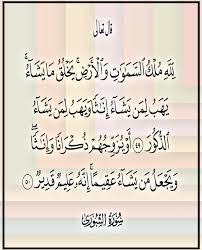 قال تعالى
لِلَّهِ مُلْكُ السَّمَاوَاتِ وَالْأَرْضِ يَخْلُقُ مَا يَشَاءُ
يَهَبُ لِمَن يَشَاءُ إِنَاثًا وَيَهَبُ لِمَن يَشَاءُ
الذُّكُورَ ٤٩ أَوْ يُزَوِّجُهُمْ ذُكْرَانًا وَإِنَاثًا
وَيَجْعَلُ مَن يَشَاءُ عَقِيمًا إِنَّهُ عَلِيمٌ قَدِيرٌ ٥٠
سُورَةُ الشُّورَى